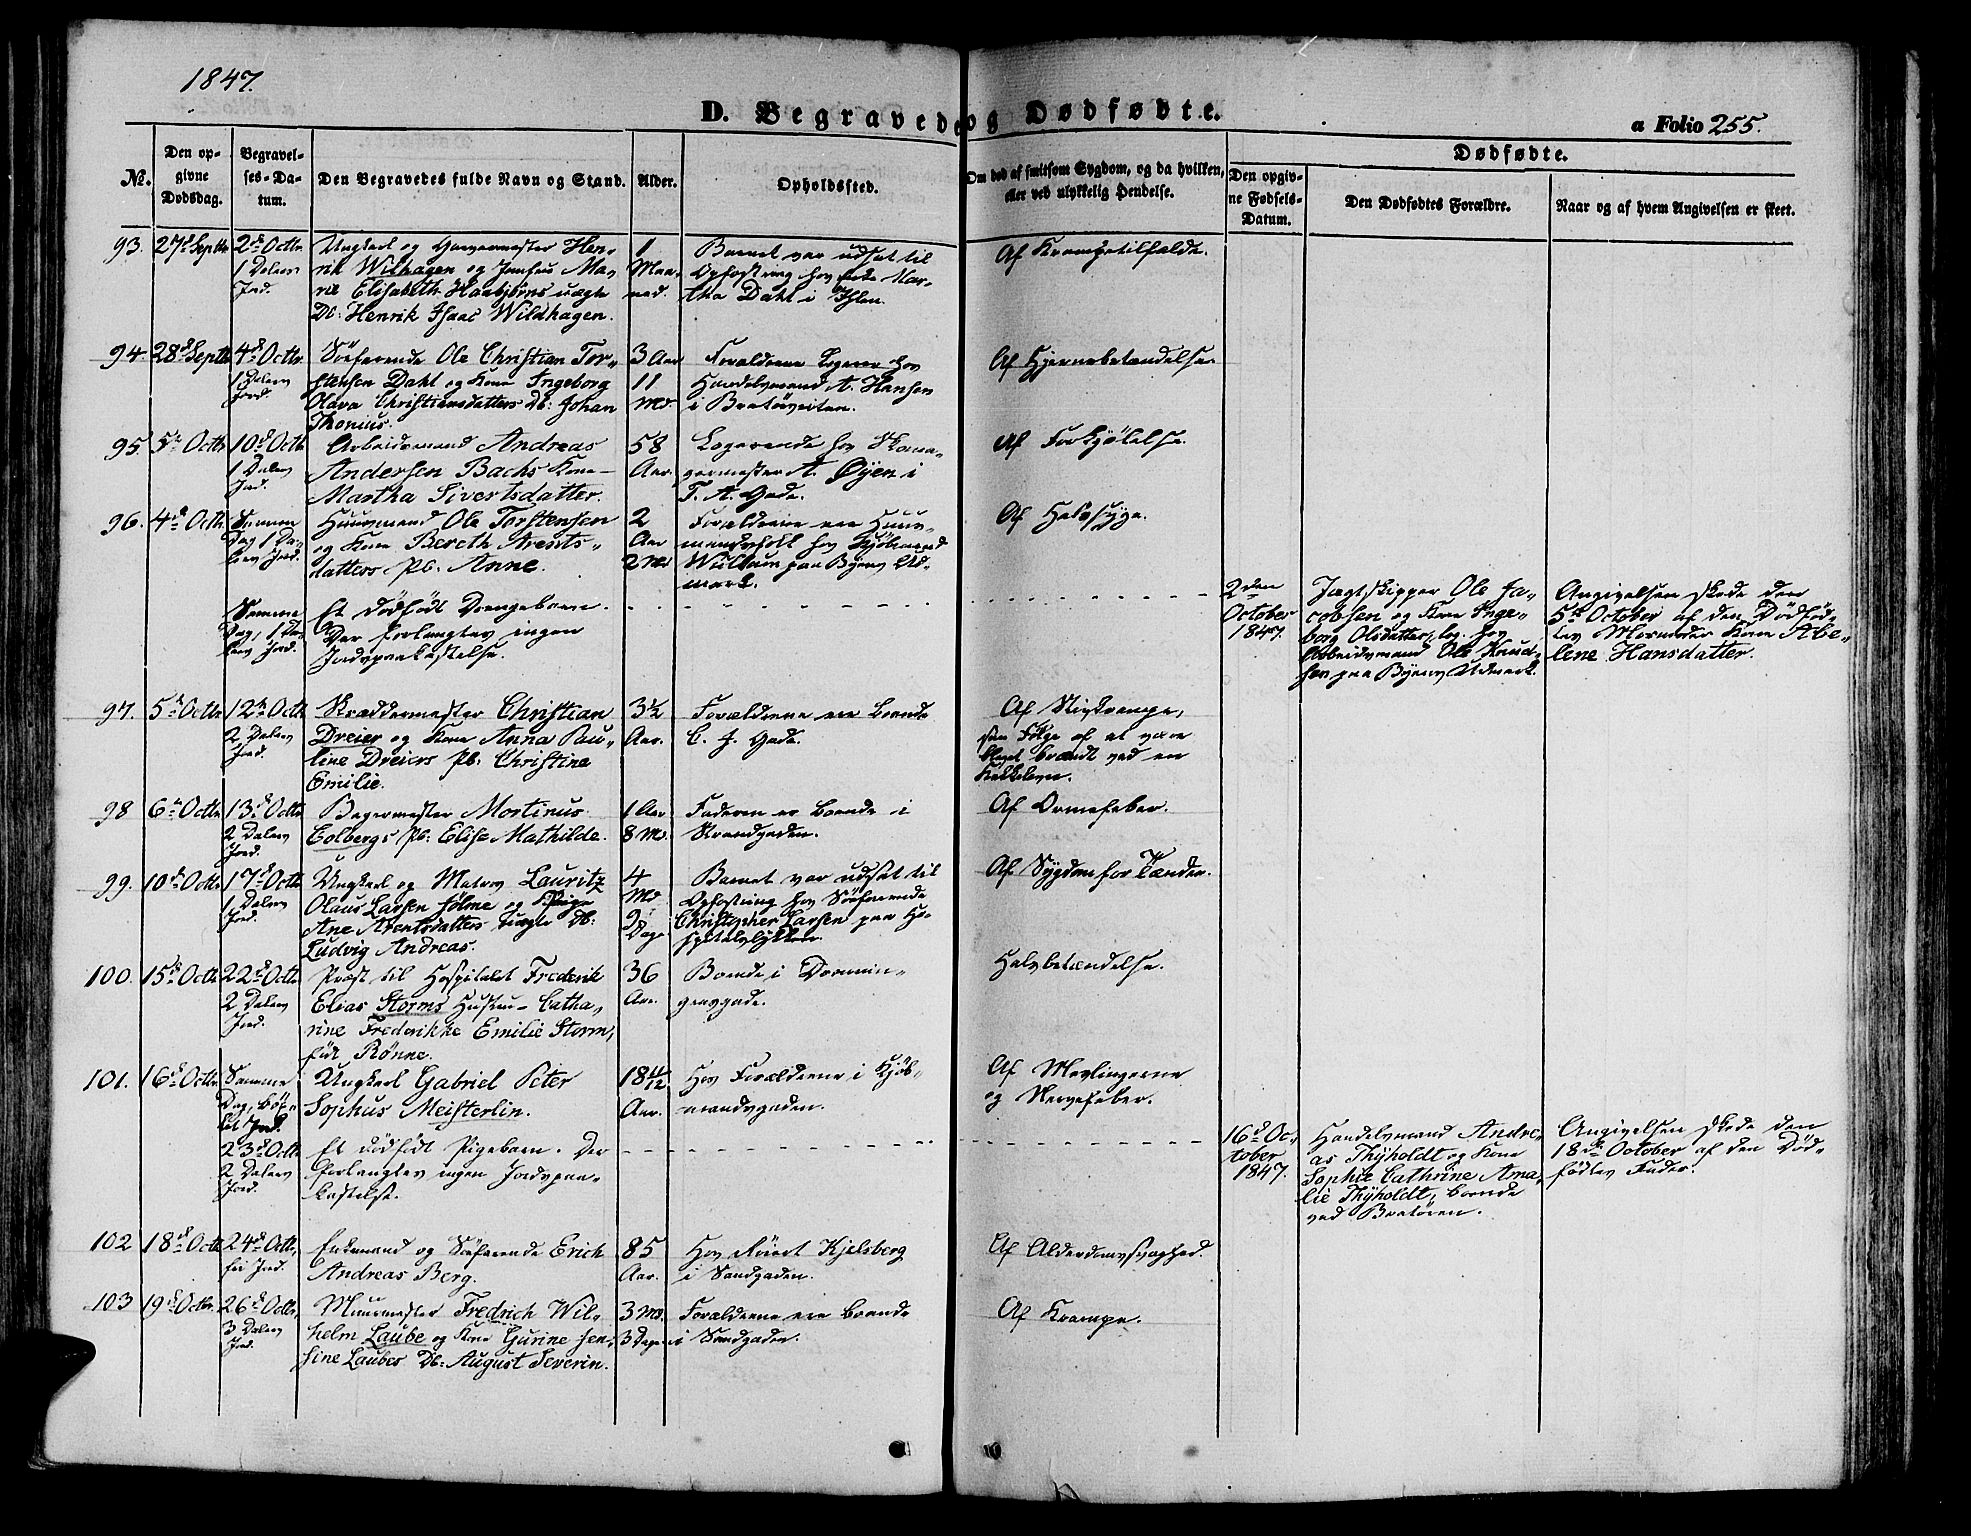 1847.
D. Begravede og Dødfødte.
a Folio 255.
Dødfødte.
No.
Den op-
givne
Dødsdag.
Begravel-
ses-Da-
tum.
Den Begravedes fulde Navn og Stand.
Alder.
Opholdssted.
Om død af smitsom Sygdom, og da hvilken,
eller ved ulykkelig Hendelse.
Den opgiv-
ne Fødsels-
Datum.
Den Dødfødtes Forældre.
Naar og af hvem Angivelsen er skeet.
93. 27de Septbr 2den Octbr
1 Dalers
Jord.
Ungkarl og Garvermester Hen-
rik Wilhagen og Jomfru Ma-
ria Elisabeth Haabjørns uægte
Db: Henrik Isaac Wildhagen.
1
Maa-
ned.
Barnet var udsat til
Opfostring hos Mar-
tha Dahl i Ihlen.
Af Krampetilfælde.
94. 28de Septbr 4de Octbr
1 Dalers
Jord.
Søefarende Ole Christian Tor-
stensen Dahl og Kone Ingeborg
Olava Christiansdatters Db: Johan
Thonius.
3 Aar
11
Md.
Forældrene logerer hos
Handelsmand A. Hansen
i Bratørveiten.
Af Hjernebetændelse.
95. 5te Octbr 10de Octbr
1 Dalers
Jord.
Arbeidsmand Andreas
Andersen Bachs Kone
Martha Sivertsdatter.
58
Aar.
Logerende hos Skoma-
germester A. Øyen i
T. A. Gade.
Af Forkjølelse.
96. 4de Octbr Samme
Dag 1 Da-
lers Jord.
Huusmand Ole Torstensen
og Kone Bereth Arents-
datters Pb. Anne.
2
Aar
2 Md
Forældrene ere Huus-
mandsfolk hos Kjøbmand
Wullum paa Byens Ud-
mark.
Af Halssyge.
Samme
Dag, 1 Da-
lers Jord.
Et dødfødt Drengebarn.
Der forlangtes ingen
Jordspaakastelse.
2den
October
1847.
Jægtskipper Ole Ja-
cobsen og Kone Inge-
borg Olsdatter, log. hos
Arbeidsmand Ole Knud-
sen paa Byens Udmark.
Angivelsen skede den
5te October af den Dødfød-
tes Mormoder Kone Abe-
lene Hansdatter.
97. 5te Octbr 12te Octbr
2 Dalers
Jord.
Skræddermester Christian
Dreier og Kone Anna Pau-
line Dreiers Pb: Christine
Emilie.
3½
Aar.
Forældrene ere boende
C. J. Gade.
Af Stivkrampe,
som Følge af at være
bleven brændt ved en
Kakkelovn.
98 6te Octbr 13de Octbr
2 Dalers
Jord.
Bagermester Mortinus
Colbergs Pb: Elise Mathilde.
1 Aar
8 Md.
Faderen er boende i
Strandgaden.
Af Ormefeber.
99. 10de Octbr 17de Octbr
1 Dalers
Jord.
Ungkarl og Matros Lauritz
Olaus Larsen Holme og Pige
Ane Arentsdatters uægte Db:
Ludvig Andreas.
4
Md
9
Dage
Barnet var udsat til
Opfostring hos Søefarende
Christopher Larsen paa Ho-
spitalsløkken.
Af Sygdom for Tænder.
100. 15de Octbr 22de Octbr
2 Dalers
Jord.
Præst til Hospitalet Frederik
Elias Storms Hustru Catha-
rine Frederikke Emilie Storm,
født Rønne.
36
Aar.
Boende i Dronnin-
gensgade.
Halsbetændelse.
101. 16de Octbr Samme
Dag,
Jord.
Ungkarl Gabriel Peter
Sophus Meisterlin.
18 11/12
Aar.
Hos Forældrene i Kjøb-
mandsgaden.
Af Meslingerne
og Nervefeber.
23de Octbr
2 Dalers
Jord.
Et dødfødt Pigebarn. Der
forlangtes ingen Jordspaa-
kastelse.
16de Oc-
tober
1847.
Handelsmand Andre-
as Thyholdt og Kone
Sophie Cathrine Ama-
lie Thyholdt, boende
ved Bratøren.
Angivelsen skede den
18de October af den Død-
fødtes Fader.
102 18de Octbr 24de Octbr,
fri Jord.
Enkemand og Søefarende Erich
Andreas Berg.
85
Aar.
Hos Kjelsberg
i Sandgaden.
Af Alderdomssvaghed.
103 19de Octbr. 26de Octbr,
3 Dalers
Jord.
Muurmester Fredrich Wil-
helm Laube og Kone Gurine Jen-
sine Laubes Db: August Severin.
3 Md.
3 Dage
Forældrene ere boende
i Sandgaden.
Af Krampe.